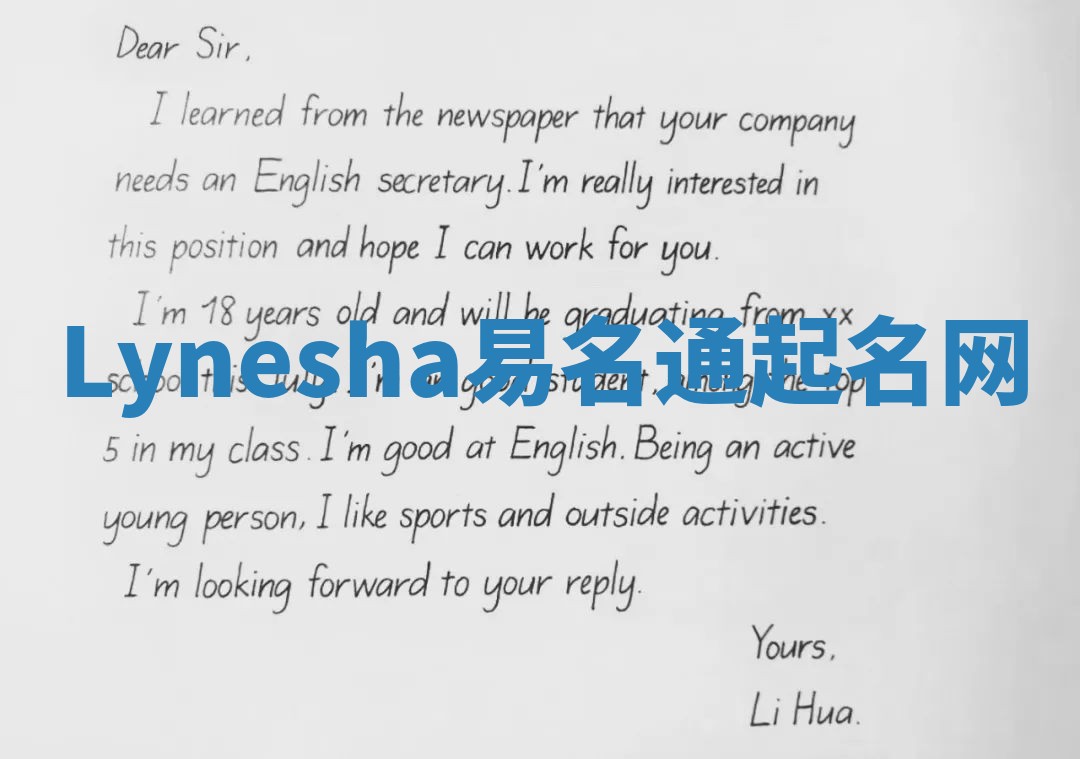 Dear Sir,
I learned from the newspaper that your company
needs an English secretary. I'm really interested in
this position and hope I can work for you.
I'm 18 years old and will be graduating from xx
Lynesha易名通起名网
school this July. I'm a good student, among the top
5 in my class. I'm good at English. Being an active
young person, I like sports and outside activities.
I'm looking forward to your reply.
Yours,
Li Hua.